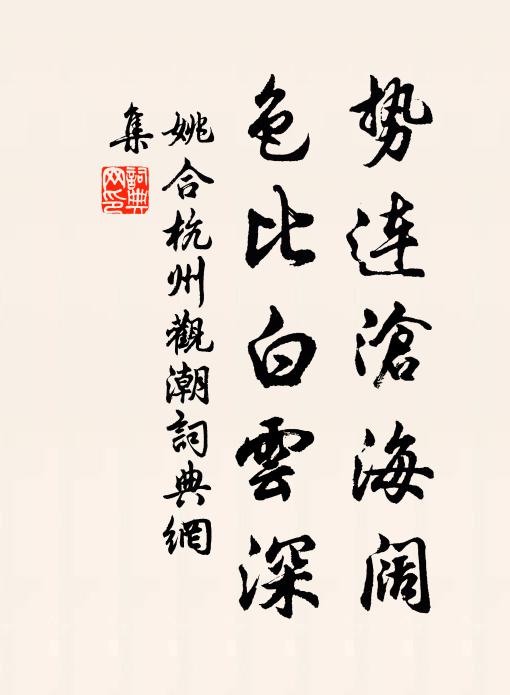 势连滄海阔
色比白雲深
姚合杭州觀潮詞典網
集
詞典
网印